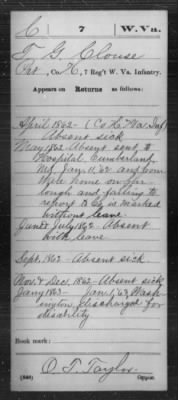 C 7 W. Va.
T. G. Clouse
Pvt, Co. K, 7 Reg't W. Va. Infantry.
Appears on Returns as follows:
April 1862- (Co L Va Inf)
Absent sick
May 1862 Absent sent to
Hospital, Cumberland,
Md. Jan. 11, '62 and from
there home on fur
lough and failing to
report to Co is marked
without leave
June & July 1862 - Absent
with leave
Sept. 1862 - Absent sick
Nov. & Dec. 1862 - Absent sick
Jany 1863 - Jan. 1, '63, Wash
ington, discharged for
disability
Book mark:
O. T. Taylor
(546) Copyist.